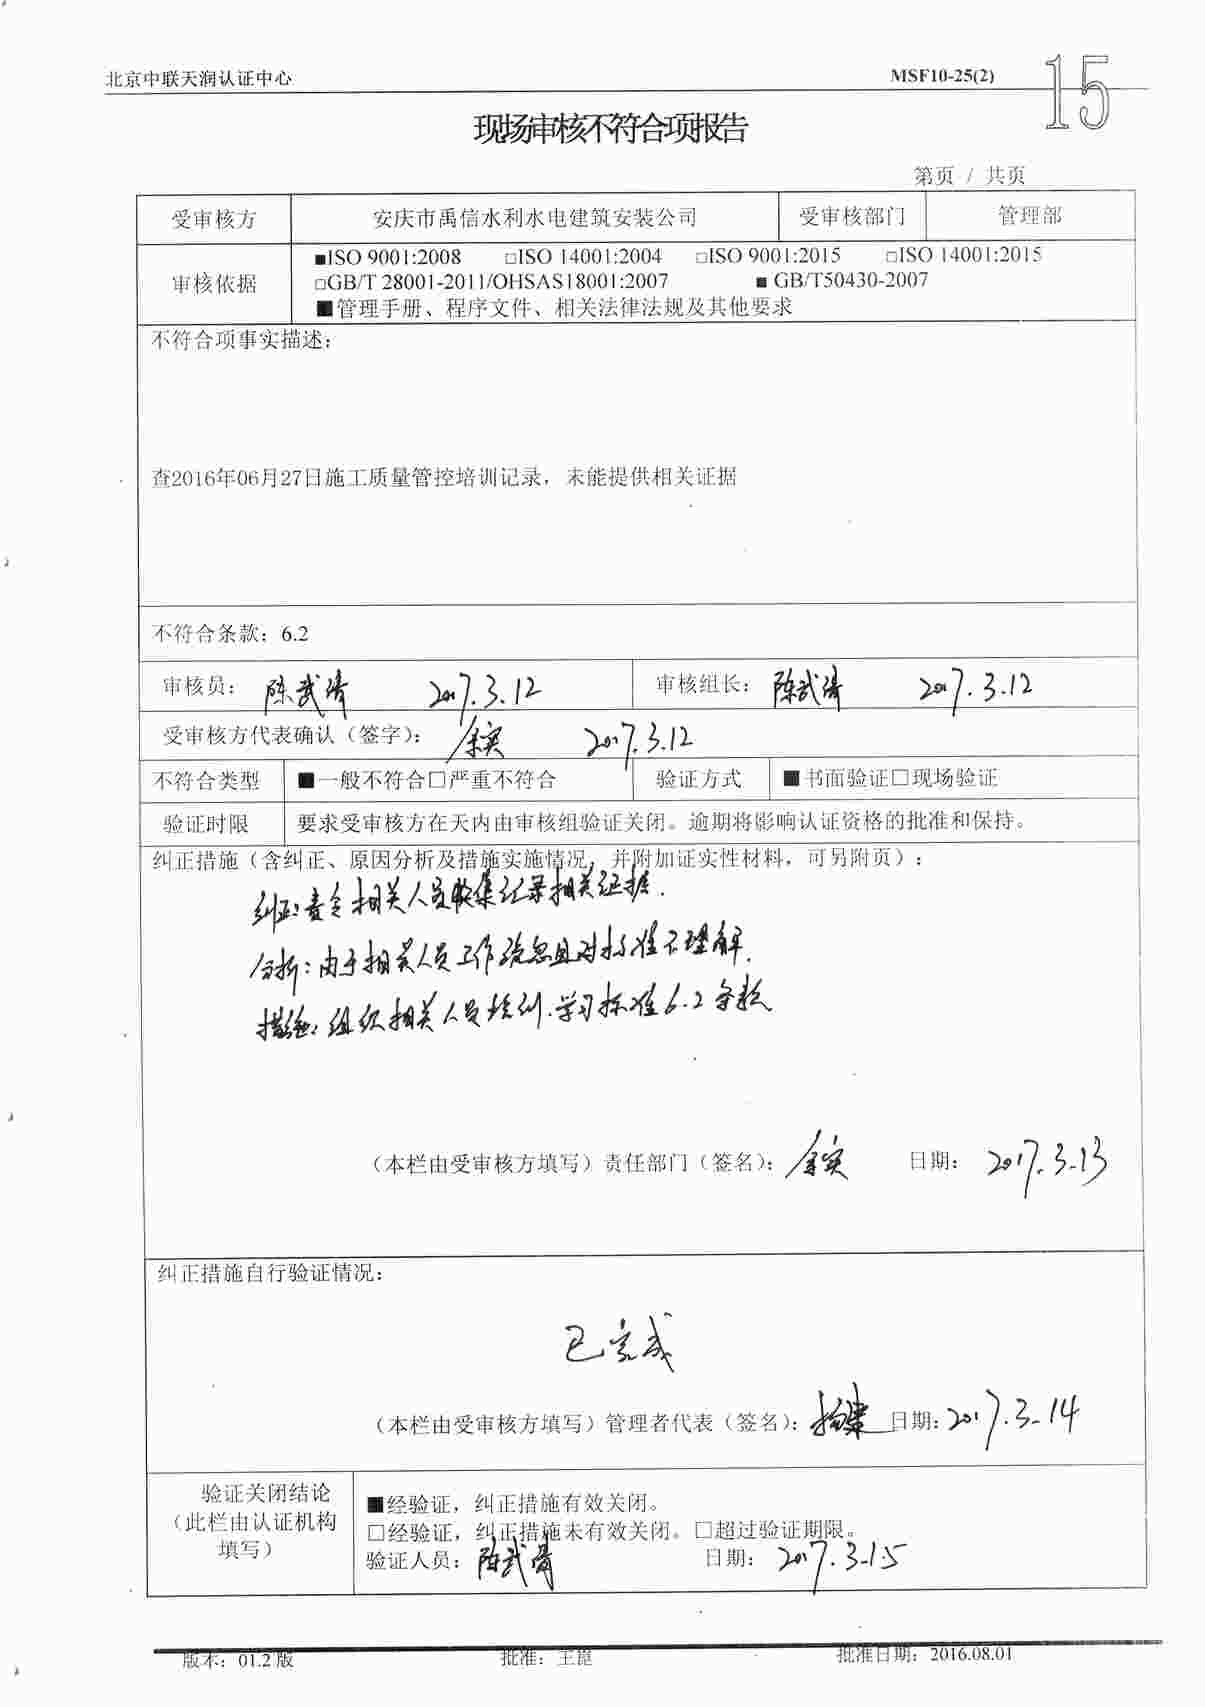 北京中联天润认证中心 MSF10-25(2) 15
现场审核不符合项报告
第页 / 共页
受审核方 安庆市禹信水利水电建筑安装公司 受审核部门 管理部
审核依据 ■ISO 9001:2008 □ISO 14001:2004 □ISO 9001:2015 □ISO 14001:2015
□GB/T 28001-2011/OHSAS18001:2007 ■ GB/T50430-2007
■管理手册、程序文件、相关法律法规及其他要求
不符合项事实描述:
查2016年06月27日施工质量管控培训记录，未能提供相关证据
不符合条款: 6.2
审核员: 陈武 2017.3.12 审核组长: 陈武 2017.3.12
受审核方代表确认（签字）: 2017.3.12
不符合类型 ■一般不符合□严重不符合 验证方式 ■书面验证□现场验证
验证时限 要求受审核方在天内由审核组验证关闭。逾期将影响认证资格的批准和保持。
纠正措施（含纠正、原因分析及措施实施情况，并附加证实性材料，可另附页）:
纠正: 责令相关人员收集记录相关证据.
分析: 由于相关人员工作疏忽且对标准不理解.
措施: 组织相关人员培训.学习标准6.2条款
（本栏由受审核方填写）责任部门（签名）: 日期: 2017.3.13
纠正措施自行验证情况:
已完成
（本栏由受审核方填写）管理者代表（签名）: 日期: 2017.3.14
验证关闭结论
（此栏由认证机构
填写）
■经验证，纠正措施有效关闭。
□经验证，纠正措施未有效关闭。□超过验证期限。
验证人员: 陈武 日期: 2017.3.15
版本: 01.2版 批准: 王 批准日期: 2016.08.01